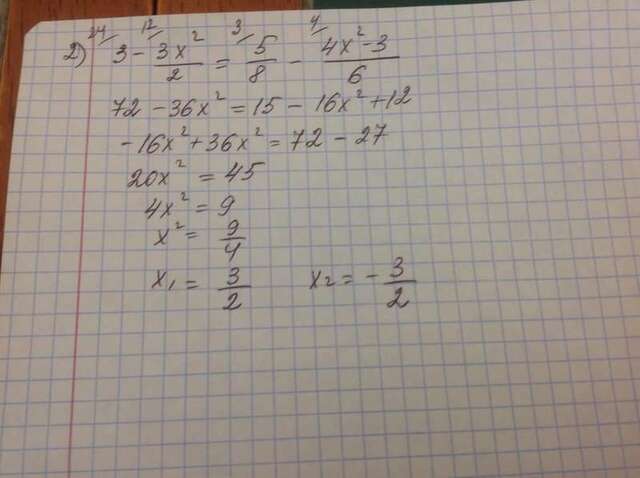 24/ 12/ 3/ 4/
2) 3 - 3x²/2 = 5/8 - (4x²-3)/6
72 - 36x² = 15 - 16x² + 12
-16x² + 36x² = 72 - 27
20x² = 45
4x² = 9
x² = 9/4
x₁ = 3/2 x₂ = - 3/2